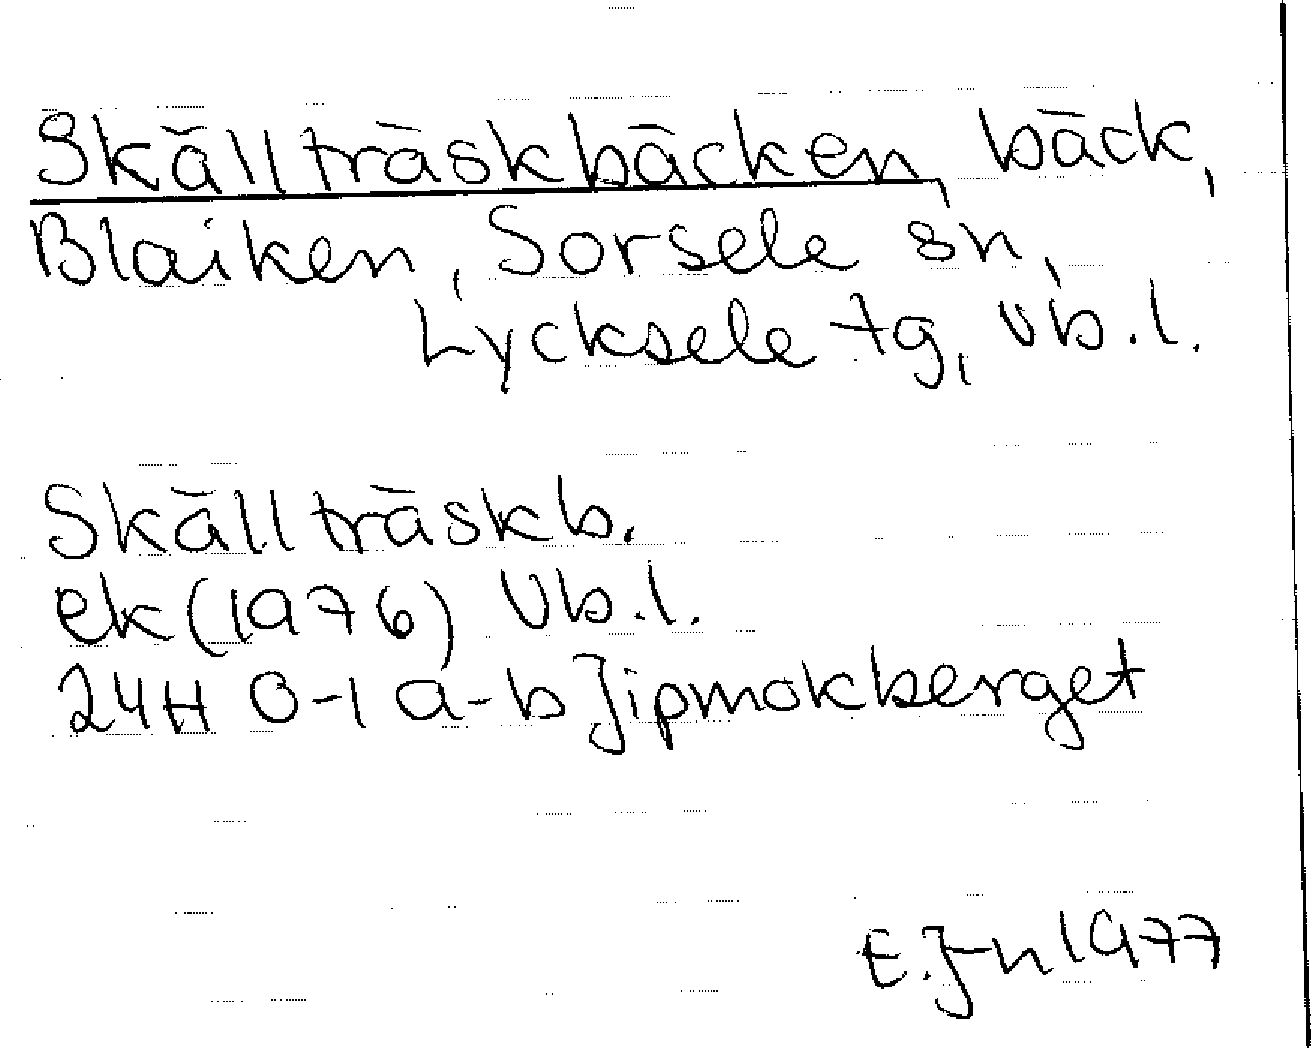 Skällträskbäcken, bäck,
Blaiken, Sorsele sn,
Lycksele tg, Vb.l.
Skällträskb.
ek (1976) Vb.l.
24H 0-1 a-b Jipmokberget
E.J-n 1977